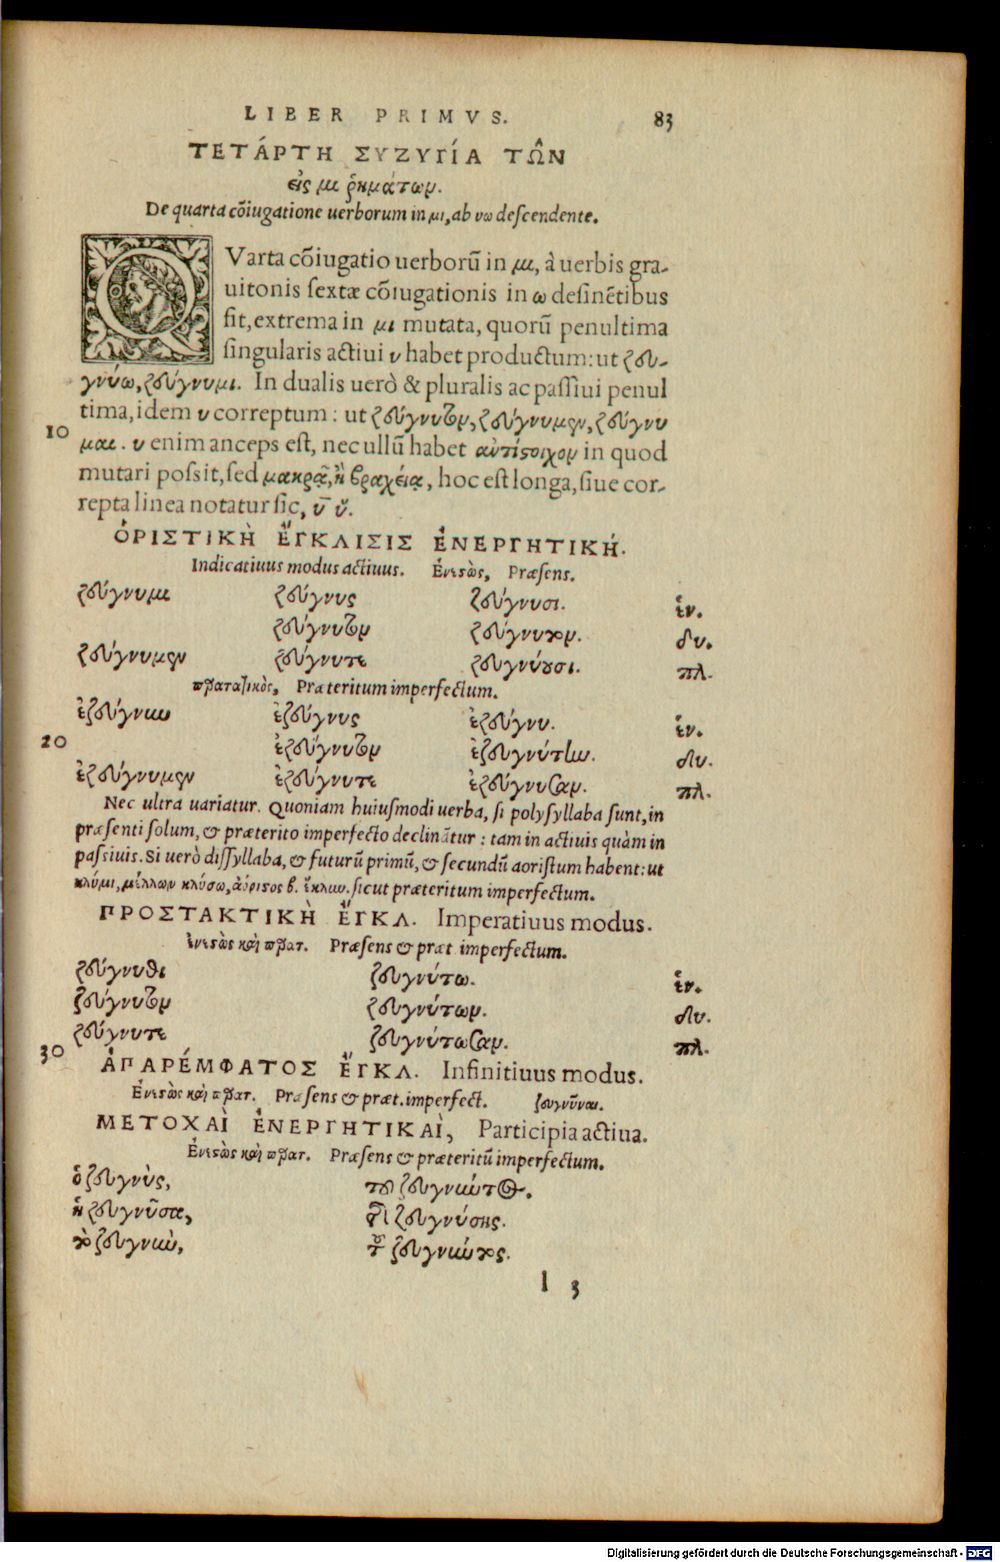 LIBER PRIMVS. 83
ΤΕΤΆΡΤΗ ΣΥΖΥΓΊΑ ΤΩ͂Ν
εἰς μι ῥημάτων.
De quarta cõiugatione uerborum in μι, ab υω descendente.
QVarta cõiugatio uerborũ in μι, à uerbis gra-
uitonis sextæ cõiugationis in ω desinẽtibus
fit, extrema in μι mutata, quorũ penultima
singularis actiui υ habet productum: ut ζευ-
γνύω, ζεύγνυμι. In dualis uerò & pluralis ac passiui penul
tima, idem υ correptum: ut ζεύγνυτον, ζεύγνυμεν, ζεύγνυ
10
μαι. υ enim anceps est, nec ullũ habet ἀντίστοιχον in quod
mutari possit, sed μακρᾷ, ἢ βραχείᾳ, hoc est longa, siue cor-
repta linea notatur sic, ῡ ῠ.
ὉΡΙΣΤΙΚῊ ἜΓΚΛΙΣΙΣ ἘΝΕΡΓΗΤΙΚΉ.
Indicatiuus modus actiuus. Ἐνεστὼς, Præsens.
ζεύγνυμι ζεύγνυς ζεύγνυσι. ἑν.
ζεύγνυτον ζεύγνυτον. δυ.
ζεύγνυμεν ζεύγνυτε ζευγνύουσι. πλ.
παρατατικὸς, Præteritum imperfectum.
ἐζεύγνυν ἐζεύγνυς ἐζεύγνυ. ἑν.
20
ἐζεύγνυτον ἐζευγνύτην. δυ.
ἐζεύγνυμεν ἐζεύγνυτε ἐζεύγνυσαν. πλ.
Nec ultra uariatur. Quoniam huiusmodi uerba, si polysyllaba sunt, in
præsenti solum, & præterito imperfecto declinãtur: tam in actiuis quàm in
passiuis. Si uerò dissyllaba, & futurũ primũ, & secundũ aoristum habent: ut
κλύμι, μέλλων κλύσω, ἀόριστος β. ἔκλυν. sicut præteritum imperfectum.
ΠΡΟΣΤΑΚΤΙΚῊ ἜΓΚΛ. Imperatiuus modus.
ἐνεστὼς καὶ παρατ. Præsens & præt imperfectum.
ζεύγνυθι ζευγνύτω. ἑν.
ζεύγνυτον ζευγνύτων. δυ.
ζεύγνυτε ζευγνύτωσαν. πλ.
30
ἈΠΑΡΈΜΦΑΤΟΣ ἜΓΚΛ. Infinitiuus modus.
Ἐνεστὼς καὶ παρατ. Præsens & præt. imperfect. ζευγνῦναι.
ΜΕΤΟΧΑῚ ἘΝΕΡΓΗΤΙΚΑῚ, Participia actiua.
Ἐνεστὼς καὶ παρατ. Præsens & præteritũ imperfectum.
ὁ ζευγνὺς, τοῦ ζευγνύντος.
ἡ ζευγνῦσα, τῆς ζευγνύσης.
τὸ ζευγνὺν, τοῦ ζευγνύντος.
l 3
Digitalisierung gefördert durch die Deutsche Forschungsgemeinschaft - DFG